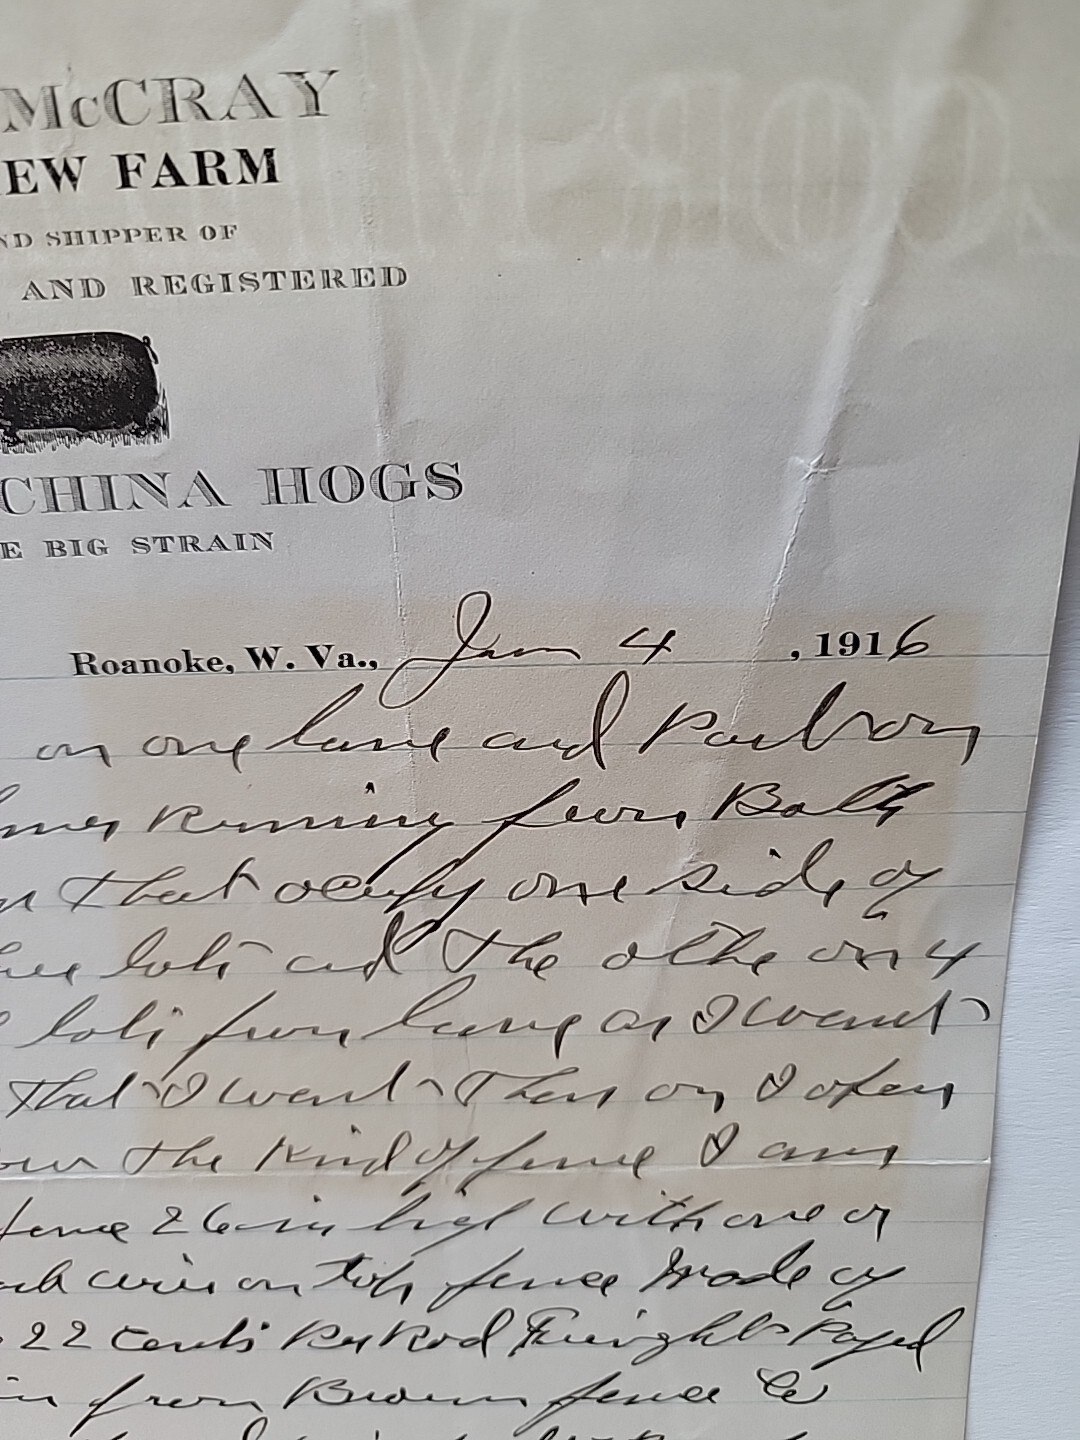 McCRAY
EW FARM
ND SHIPPER OF
AND REGISTERED
CHINA HOGS
E BIG STRAIN
Roanoke, W. Va., Jan 4, 1916
on one lane and
running from
that ocupy one side of
lots and the othe on 4
lots from lane as I want
that I want then on I open
the Kind of fence I am
fence 26 in high with one or
wires on top fence Made of
22 cents Per Rod Freight Payed
in from Brown fence Co